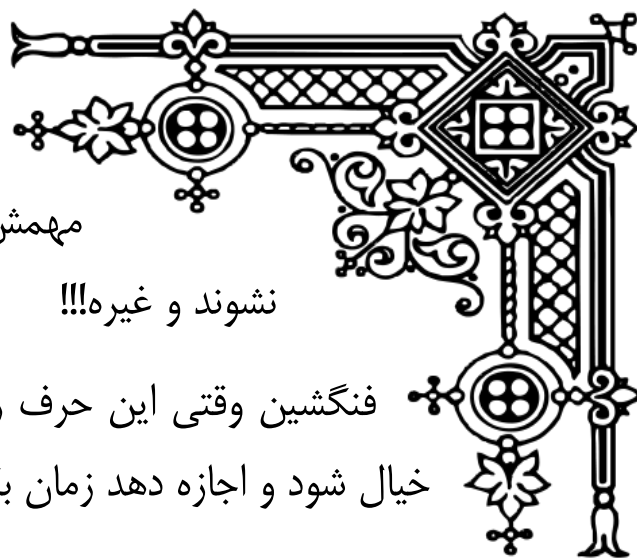 مهمش
نشوند و غیره!!!
فنگشین وقتی این حرف
خیال شود و اجازه دهد زمان